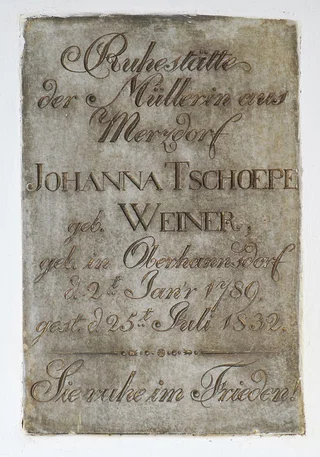 Ruhestätte
der Müllerin aus
Merzdorf
JOHANNA TSCHOEPE
geb. WEINER,
geb. in Oberhannsdorf
d. 2t. Janr 1789.
gest. d. 25t. Juli 1832.
Sie ruhe im Frieden!